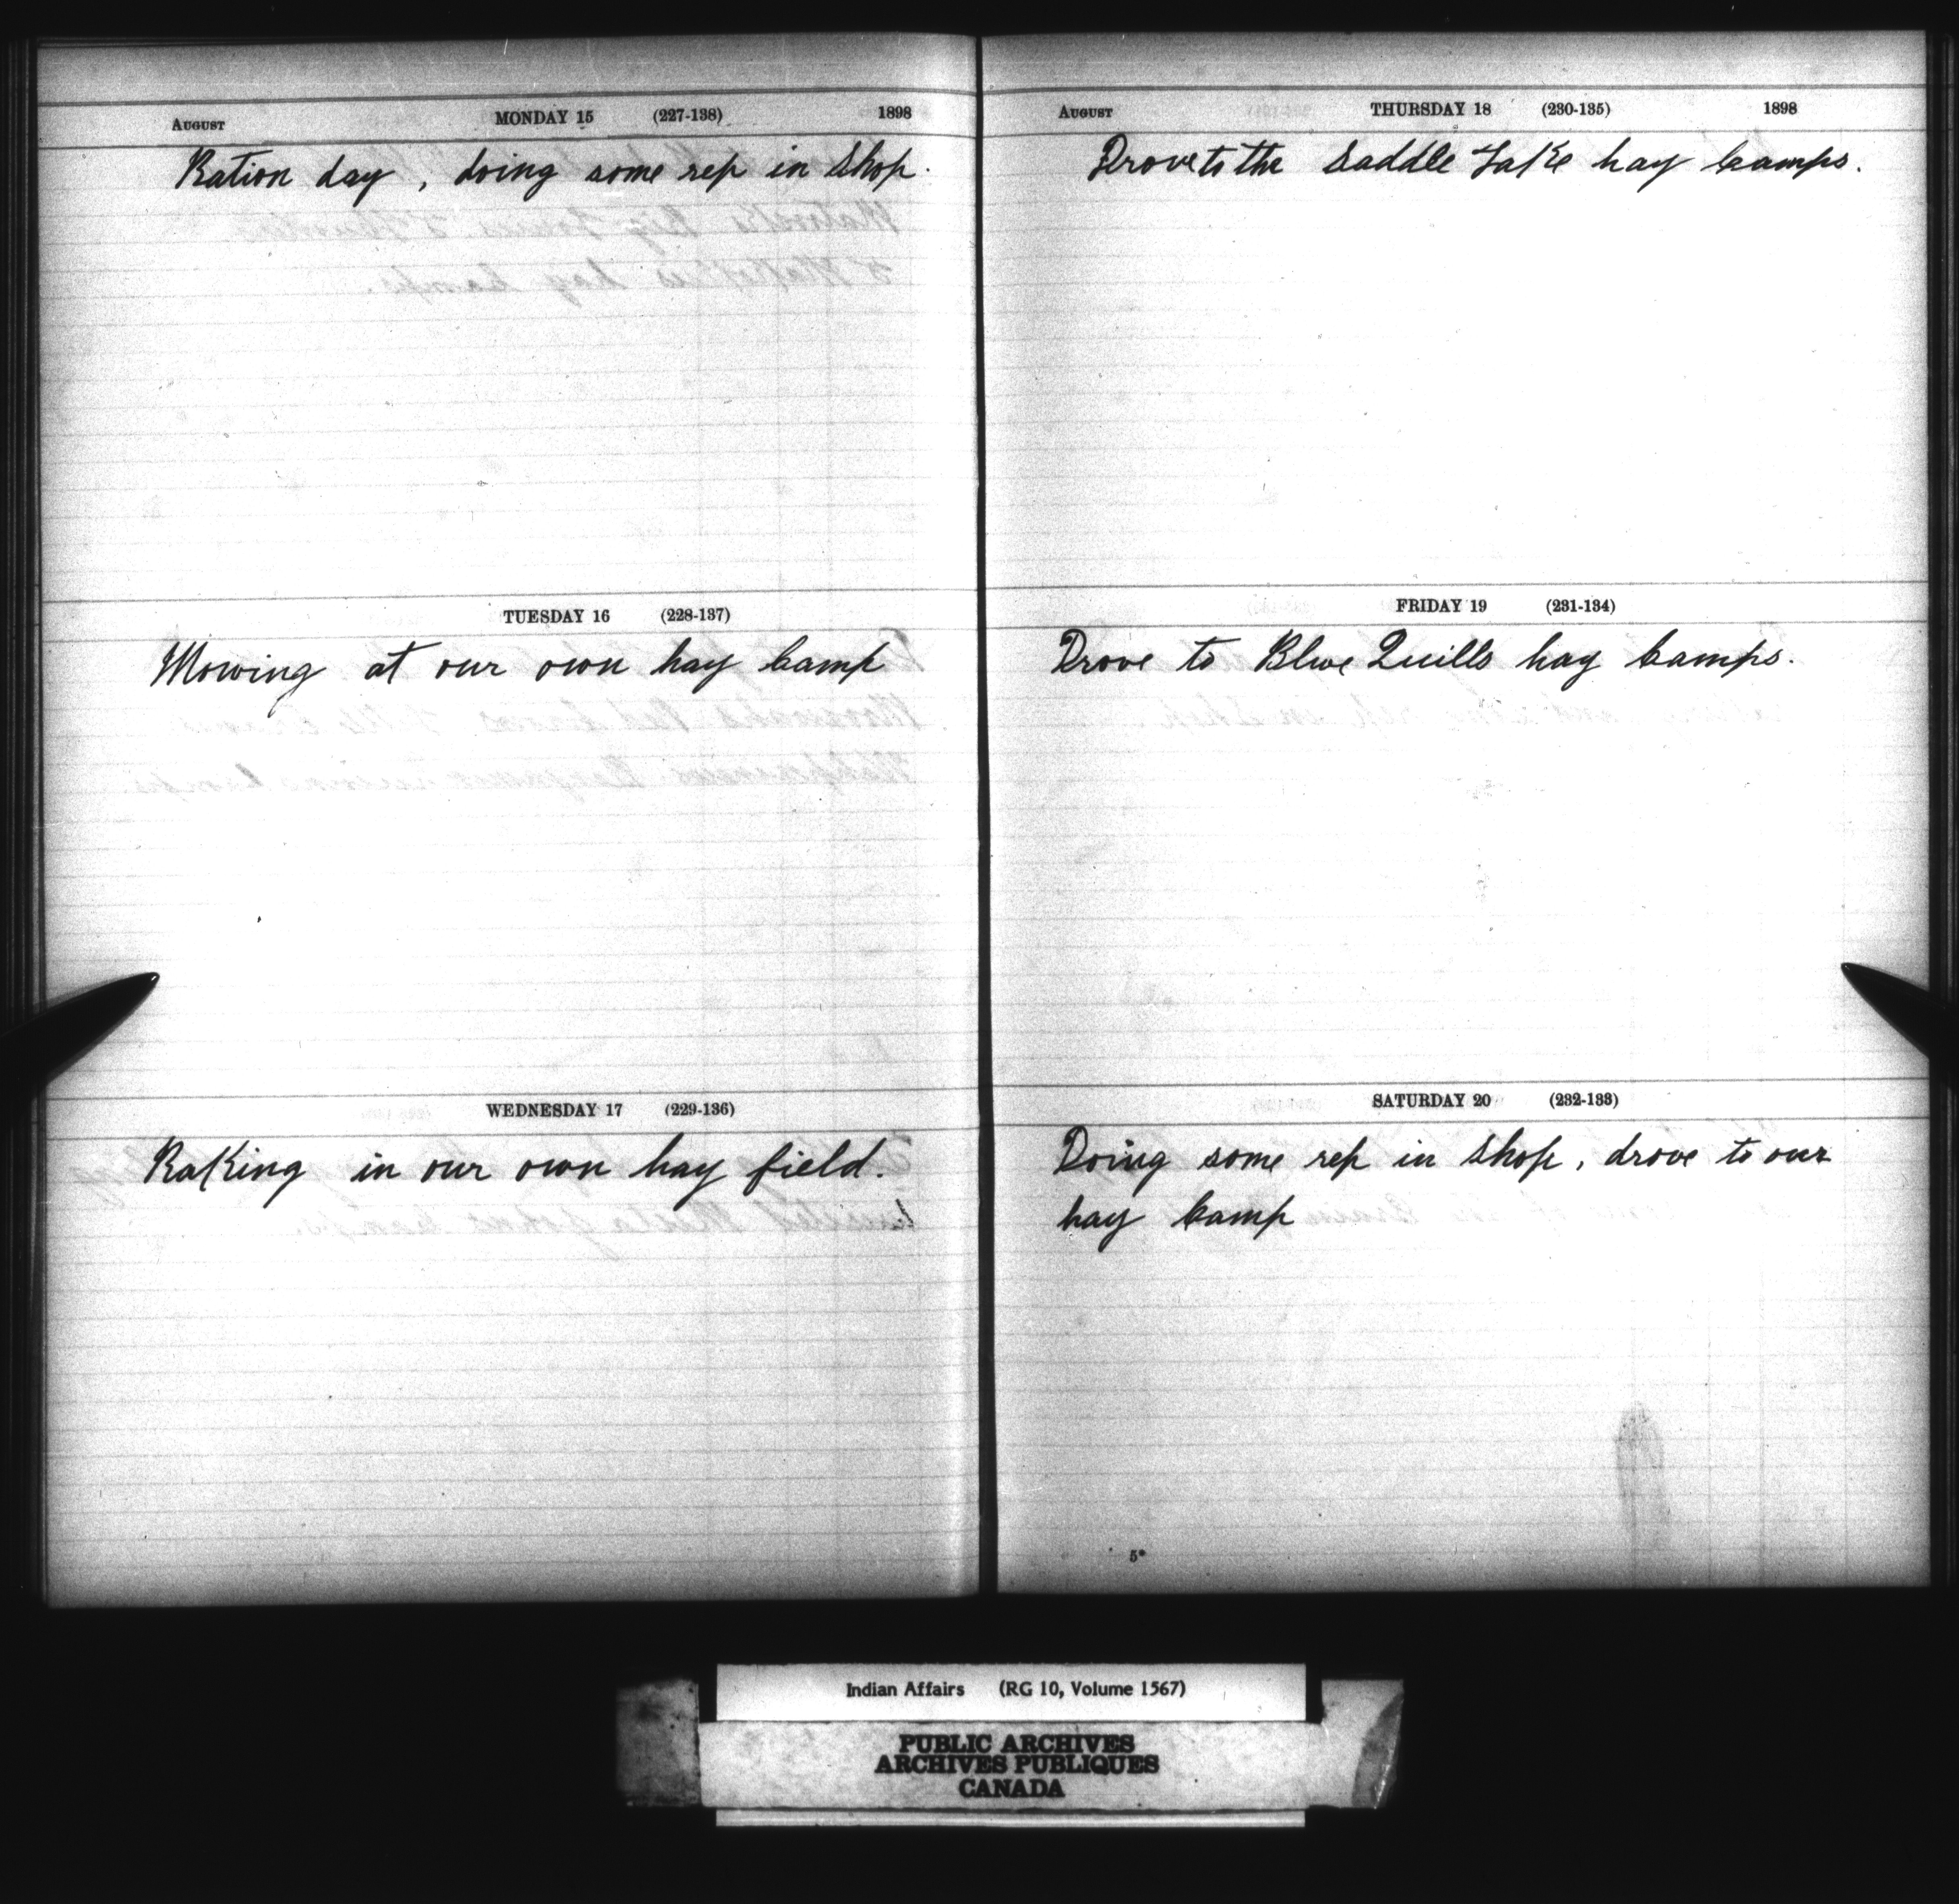 August MONDAY 15 (227-138) 1898
Ration day, doing some rep in Shop.
TUESDAY 16 (228-137)
Mowing at our own hay Camp
WEDNESDAY 17 (229-136)
Raking in our own hay field.
August THURSDAY 18 (230-135) 1898
Drove to the Saddle Lake hay Camps.
FRIDAY 19 (231-134)
Drove to Blue Quills hay Camps.
SATURDAY 20 (232-133)
Doing some rep in Shop, drove to our
hay Camp
5*
Indian Affairs (RG 10, Volume 1567)
PUBLIC ARCHIVES
ARCHIVES PUBLIQUES
CANADA